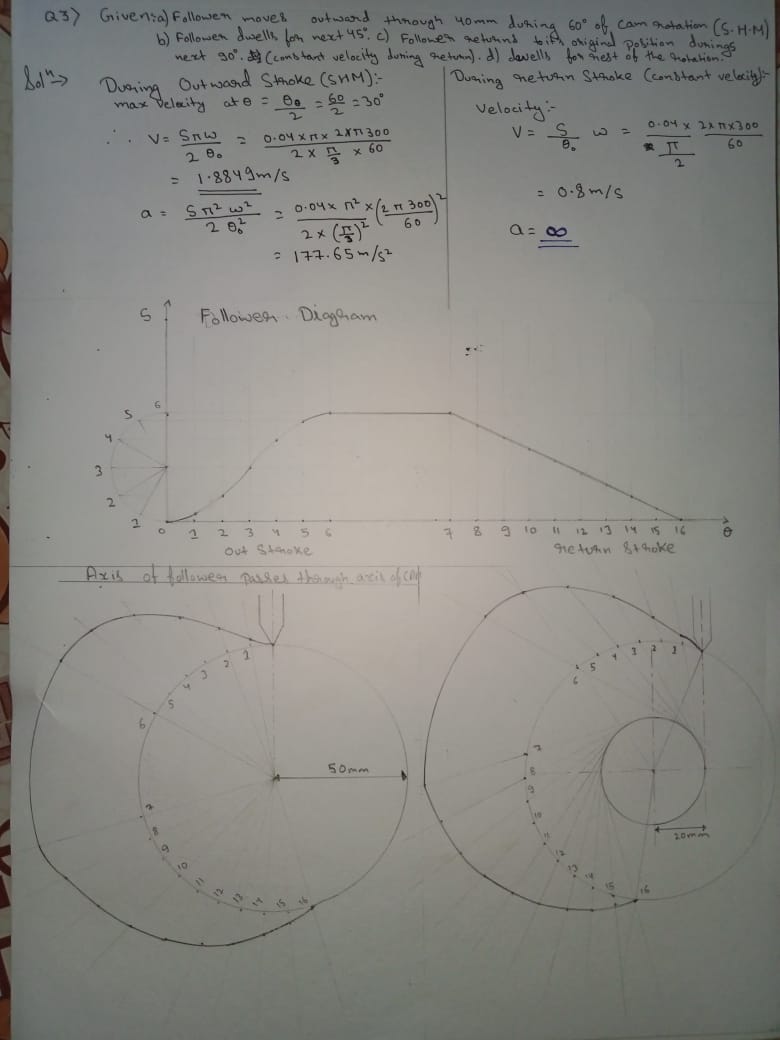 Q3) Given:a) Follower moves outward through 40mm during 60° of cam rotation (S.H.M)
b) Follower dwells for next 45°. c) Follower returnd to its original position durings
next 90°. (constant velocity during return). d) dwells for rest of the rotation.
Solⁿ→
During Outward Stroke (SHM):-
max velocity at θ = θ₀/2 = 60/2 = 30°
∴ V = Sπω/2θ₀ = 0.04×π×2×π300/2×π/3×60
= 1.8849m/s
a = Sπ²ω²/2θ₀² = 0.04×π²×(2π300/60)²/2×(π/3)²
= 177.65m/s²
During return Stroke (constant velocity):-
Velocity:-
V = S/θ₀ ω = 0.04/π/2 × 2×π×300/60
= 0.8m/s
a = ∞
S
Follower Diagram
6
5
4
3
2
1
0 1 2 3 4 5 6 7 8 9 10 11 12 13 14 15 16 θ
out Stroke
return Stroke
Axis of follower passes through axis of cam
1
2
3
4
5
6
7
8
9
10
11
12
13
14
15
16
50mm
1
2
3
4
5
6
7
8
9
10
11
12
13
14
15
16
20mm